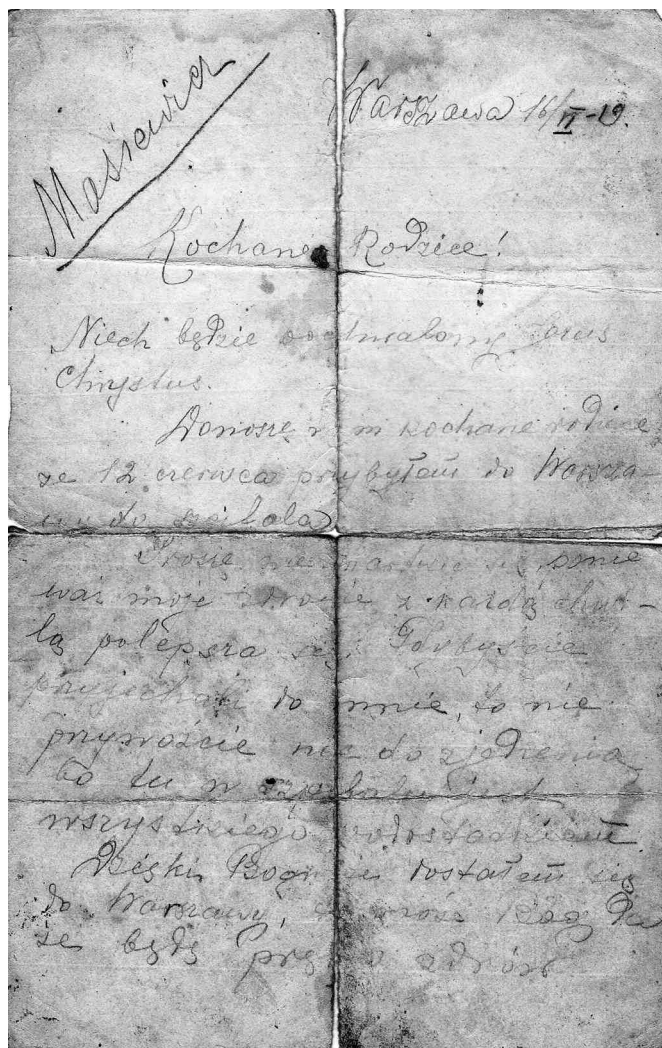 Masiewicz
Warszawa 16/VI-19.
Kochane Rodzice!
Niech będzie pochwalony Jezus
Chrystus.
Donoszę kochane rodzice,
że 12 czerwca przybyłem do Warsza-
wy do szpitala
Proszę nie martwić się, ponie
waż moje zdrowie z każdą chwi-
lą polepsza się. Gdybyście
przyjechali do mnie, to nie
przywoźcie nic do zjedzenia
bo tu w szpitalu jest
wszystkiego
Dzięki Bogu że dostałem się
do Warszawy, może Bóg da
że będę prędko zdrów